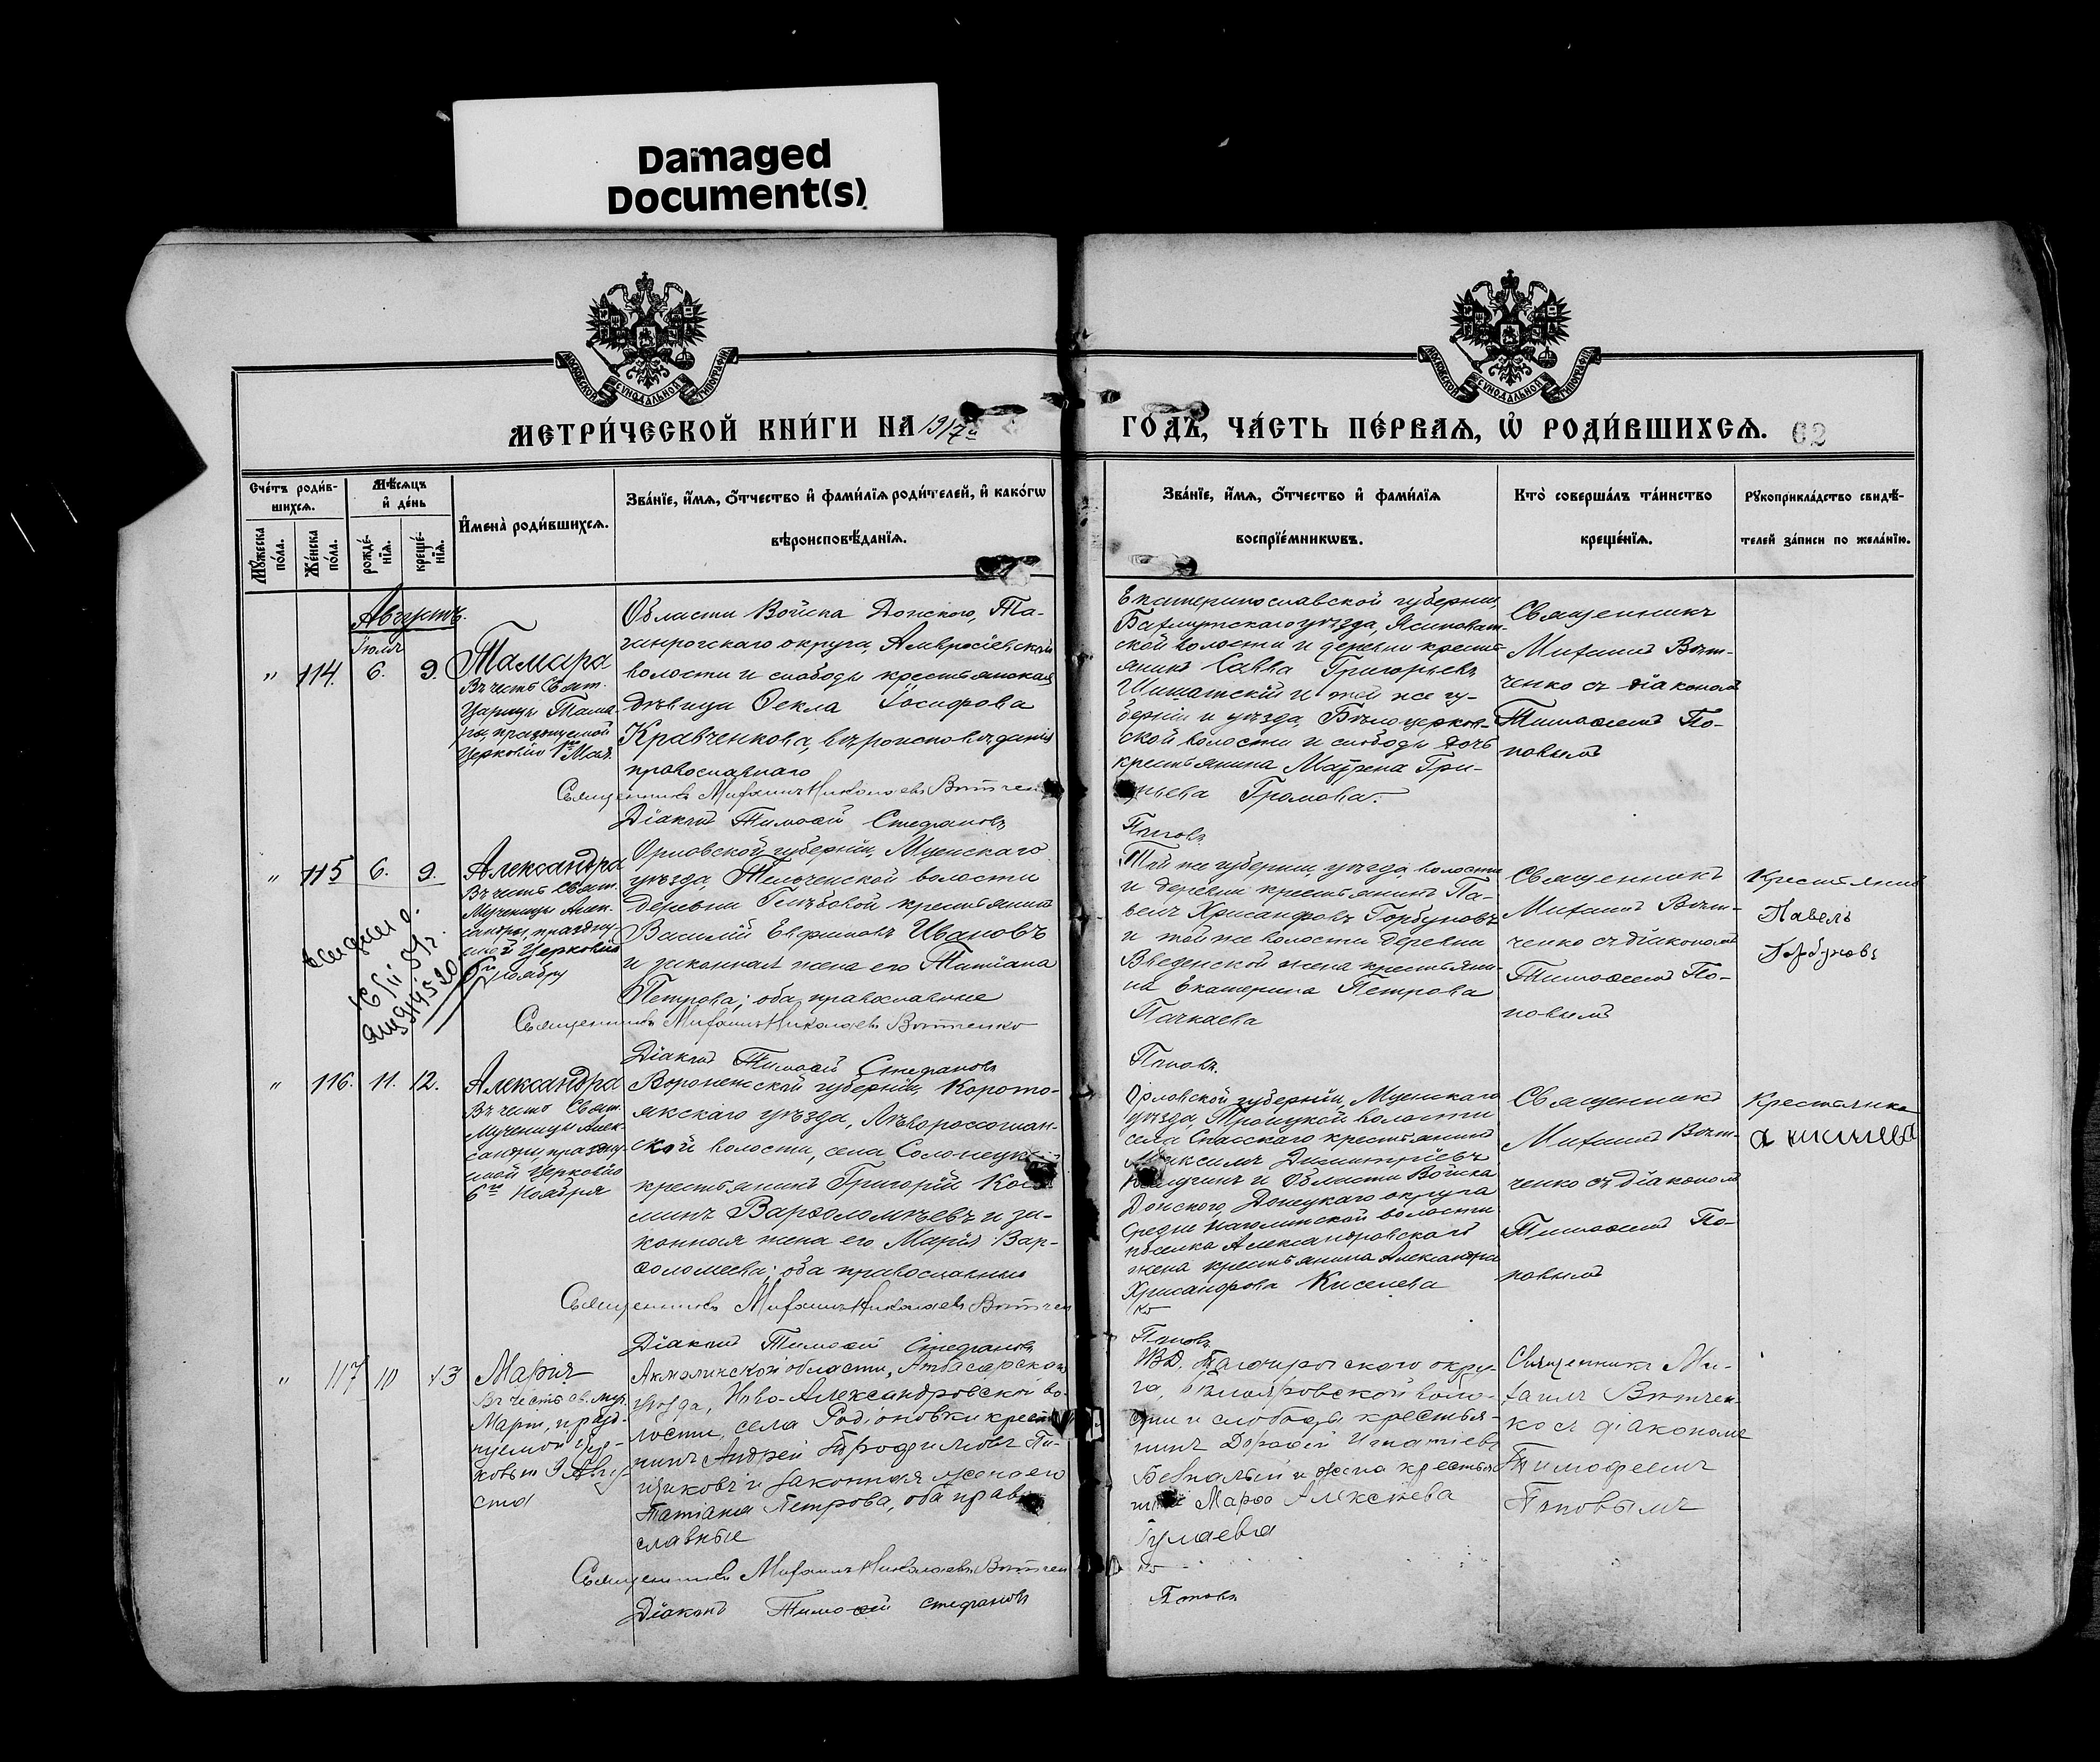 Damaged
Document(s)
МОСКОВСКОЙ СѴНОДАЛЬНОЙ ТИПОГРАФІИ
МОСКОВСКОЙ СѴНОДАЛЬНОЙ ТИПОГРАФІИ
МЕТРИ́ЧЕСКОЙ КНИ́ГИ НА 1917й
ГО́ДЪ, ЧА́СТЬ ПЕ́РВАѦ, Ѡ҆ РОДИ́ВШИХСѦ.
62
Сче́тъ роди́в-
шихсѧ.
Мꙋ́жеска
по́ла.
Же́нска
по́ла.
Мѣ́сѧцъ
и҆ де́нь
рожде́-
нїѧ.
креще́-
нїѧ.
И҆мена̀ роди́вшихсѧ.
Зва́нїе, и҆́мѧ, ѻ҆́тчество и҆ фами́лїѧ роди́телей, и҆ како́гѡ
вѣроисповѣ́данїѧ.
Зва́нїе, и҆́мѧ, ѻ҆́тчество и҆ фами́лїѧ
воспрїе́мникѡвъ.
Кто̀ соверша́лъ та́инство
креще́нїѧ.
Рꙋкоприкла́дство свидѣ́-
телей за́писи по жела́нїю.
Августъ.
Іюля
" 114. 6. 9.
Тамара
Въ честь Свят.
Царицы Тама-
ры, празднуемой
Церковію 1го Мая.
Области Войска Донского, Та-
ганрогскаго округа, Амвросіевской
волости и слободы крестьянская
дѣвица Ѳекла Іосифова
Кравченкова, вѣроисповѣданія
православнаго
Священникъ Михаилъ Николаевъ Витчен
Діаконъ Тимоѳей Стефановъ
Екатеринославской губерніи,
Бахмутскаго уѣзда, Ясиноват-
ской волости и деревни кресть-
янинъ Савва Григорьевъ
и той же гу-
берніи и уѣзда, Бѣлоцерков-
ской волости и слободы дочь
крестьянина Матрена Гри-
рьева Громова.
Поповъ
Священникъ
Михаилъ Вит-
ченко съ діакономъ
Тимоѳеемъ По-
повымъ
" 115 6. 9.
Александра
Въ честь Свят.
Мученицы Алек-
сандры, праздну-
емой Церковію
6го Ноября
16/II 59г.
Орловской губерніи, Мценскаго
уѣзда, Тельченской волости
деревни Глѣбовой крестьянинъ
Василій Евфимовъ Ивановъ
и законная жена его Татіана
Петрова; оба православные
Священникъ Михаилъ Николаевъ Витченко
Діаконъ Тимоѳей Стефановъ
Той же губерніи, уѣзда, волости
и деревни крестьянинъ Па-
велъ Хрисанфовъ Горбуновъ
и той же волости деревни
Введенской жена крестьяни-
на Екатерина Петрова
Поповъ.
Священникъ
Михаилъ Вит-
ченко съ діакономъ
Тимоѳеемъ По-
повымъ
Крестьянинъ
Павелъ
Горбуновъ
" 116. 11. 12.
Александра
Въ честь Свят.
Мученицы Алек-
сандры, праздну-
емой Церковію
6го Ноября
Воронежской губерніи, Корото-
якскаго уѣзда, Лѣвороссошан-
ской волости, села Солонецк
крестьянинъ Григорій Кос
минъ Варѳоломѣевъ и за-
конная жена его Марія Вар-
ѳоломеева; оба православные
Священникъ Михаилъ Николаевъ Витчен
Діаконъ Тимоѳей Стефановъ
Орловской губерніи, Мценскаго
уѣзда, Троицкой волости
села Спасскаго крестьянинъ
Максимъ Димитріевъ
и Области Войска
Донского, Донецкаго округа
Средне Наголинской волости
поселка Александровскаго
жена крестьянина Александра
Хрисанфова Киселева
ко
Поповъ.
Священникъ
Михаилъ Вит-
ченко съ діакономъ
Тимоѳеемъ По-
повымъ
Крестьянка
" 117 10 13
Марія
Въ честь св. муч.
Маріи, празд-
нуемой Цер-
ковью 9 Авгу-
ста
Акмолинской области, Атбасарскаго
уѣзда, Ново-Александровской во-
лости, села Родіоновки кресть
нинъ Андрей Трофимовъ Пи-
щиковъ и законная жена его
Татіана Петрова, оба право
славные
Священникъ Михаилъ Николаевъ Витчен
Діаконъ Тимоѳей Стефановъ
ОВД. Таганрогскаго окру-
га, воло-
сти и слободы крестья-
нинъ Дороѳей Игнатіевъ
Безпалый и жена крестья
нина Марѳа Алексѣева
Гулаева
ко
Поповъ
Священникъ Ми-
хаилъ Витчен-
ко съ діакономъ
Тимофеемъ
Поповымъ